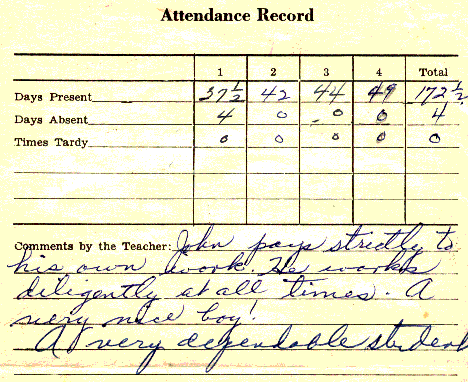 Attendance Record
1 2 3 4 Total
Days Present 37½ 42 44 49 172½
Days Absent 4 0 0 0 4
Times Tardy 0 0 0 0 0
Comments by the Teacher: John pays strictly to
his own work. He works
diligently at all times. A
very nice boy!
A very dependable student